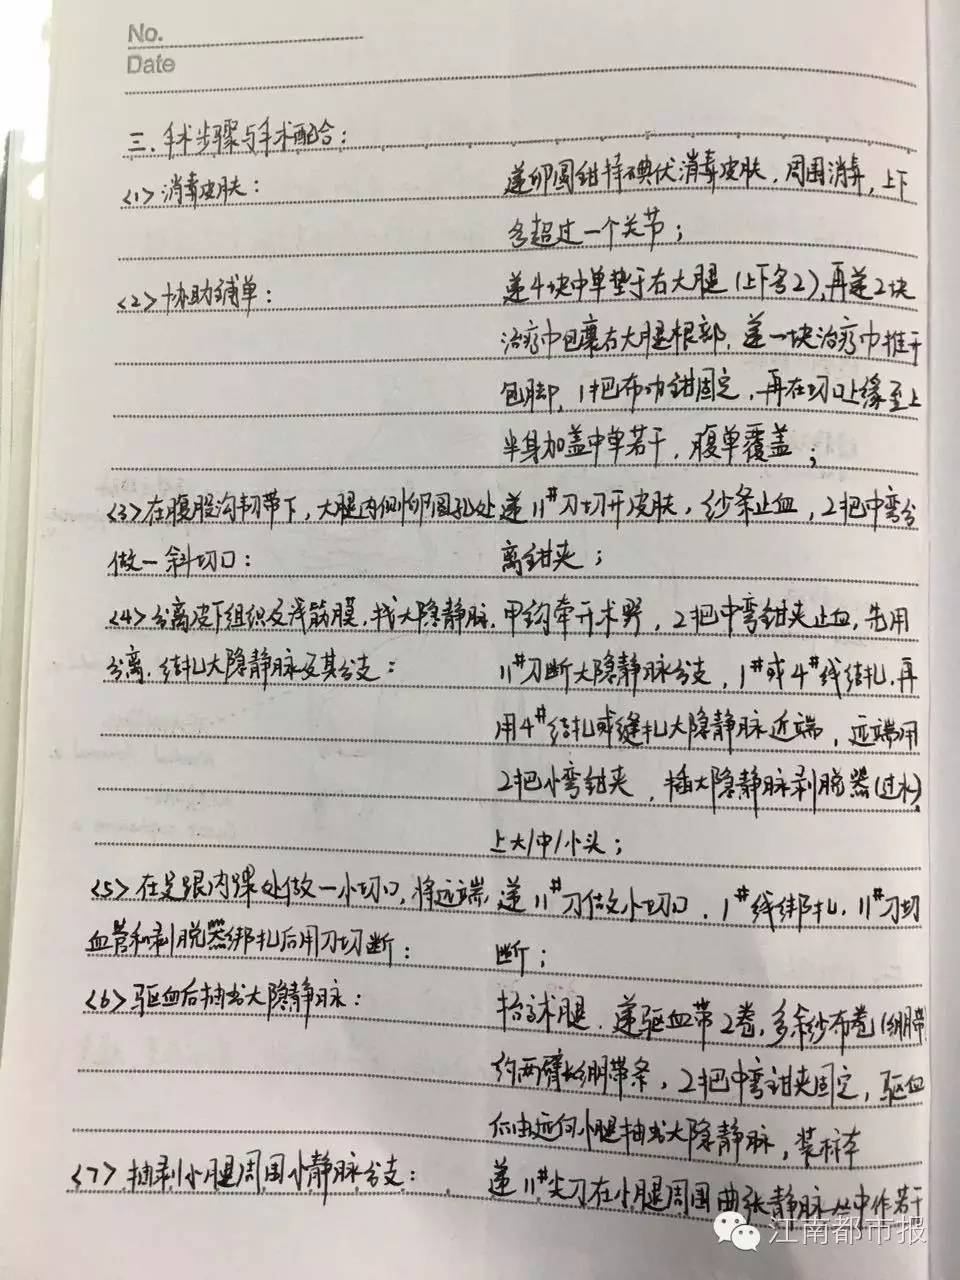 No.
Date
三.手术步骤与手术配合：
<1>消毒皮肤： 递卵圆钳持碘伏消毒皮肤，周围消毒，上下
各超过一个关节；
<2>协助铺单： 递4块中单垫于右大腿（上下各2），再递2块
治疗巾包裹右大腿根部，递一块治疗巾推开
包脚，1把布巾钳固定，再在切口上缘至上
半身加盖中单若干，腹单覆盖；
<3>在腹股沟韧带下，大腿内侧卵圆孔处 递11#刀切开皮肤，纱条止血，2把中弯分
做一斜切口： 离钳夹；
<4>分离皮下组织及浅筋膜，找大隐静脉， 甲钩牵开术野，2把中弯钳夹止血，先用
分离.结扎大隐静脉及其分支： 11#刀断大隐静脉分支，1#或4#线结扎.再
用4#结扎或缝扎大隐静脉近端，远端用
2把小弯钳夹，插大隐静脉剥脱器(过水)
上大/中/小头；
<5>在足跟内踝处做一小切口，将远端 递11#刀做小切口，1#线绑扎，11#刀切
血管和剥脱器绑扎后用刀切断： 断；
<6>驱血后抽出大隐静脉： 抬高术腿，递驱血带2卷，多余纱布卷(绷带)
约两臂长绷带条，2把中弯钳夹固定，驱血
后由远向小腿抽出大隐静脉，装标本
<7>抽剥小腿周围小静脉分支： 递11#尖刀在小腿周围曲张静脉丛中作若干
江南都市报